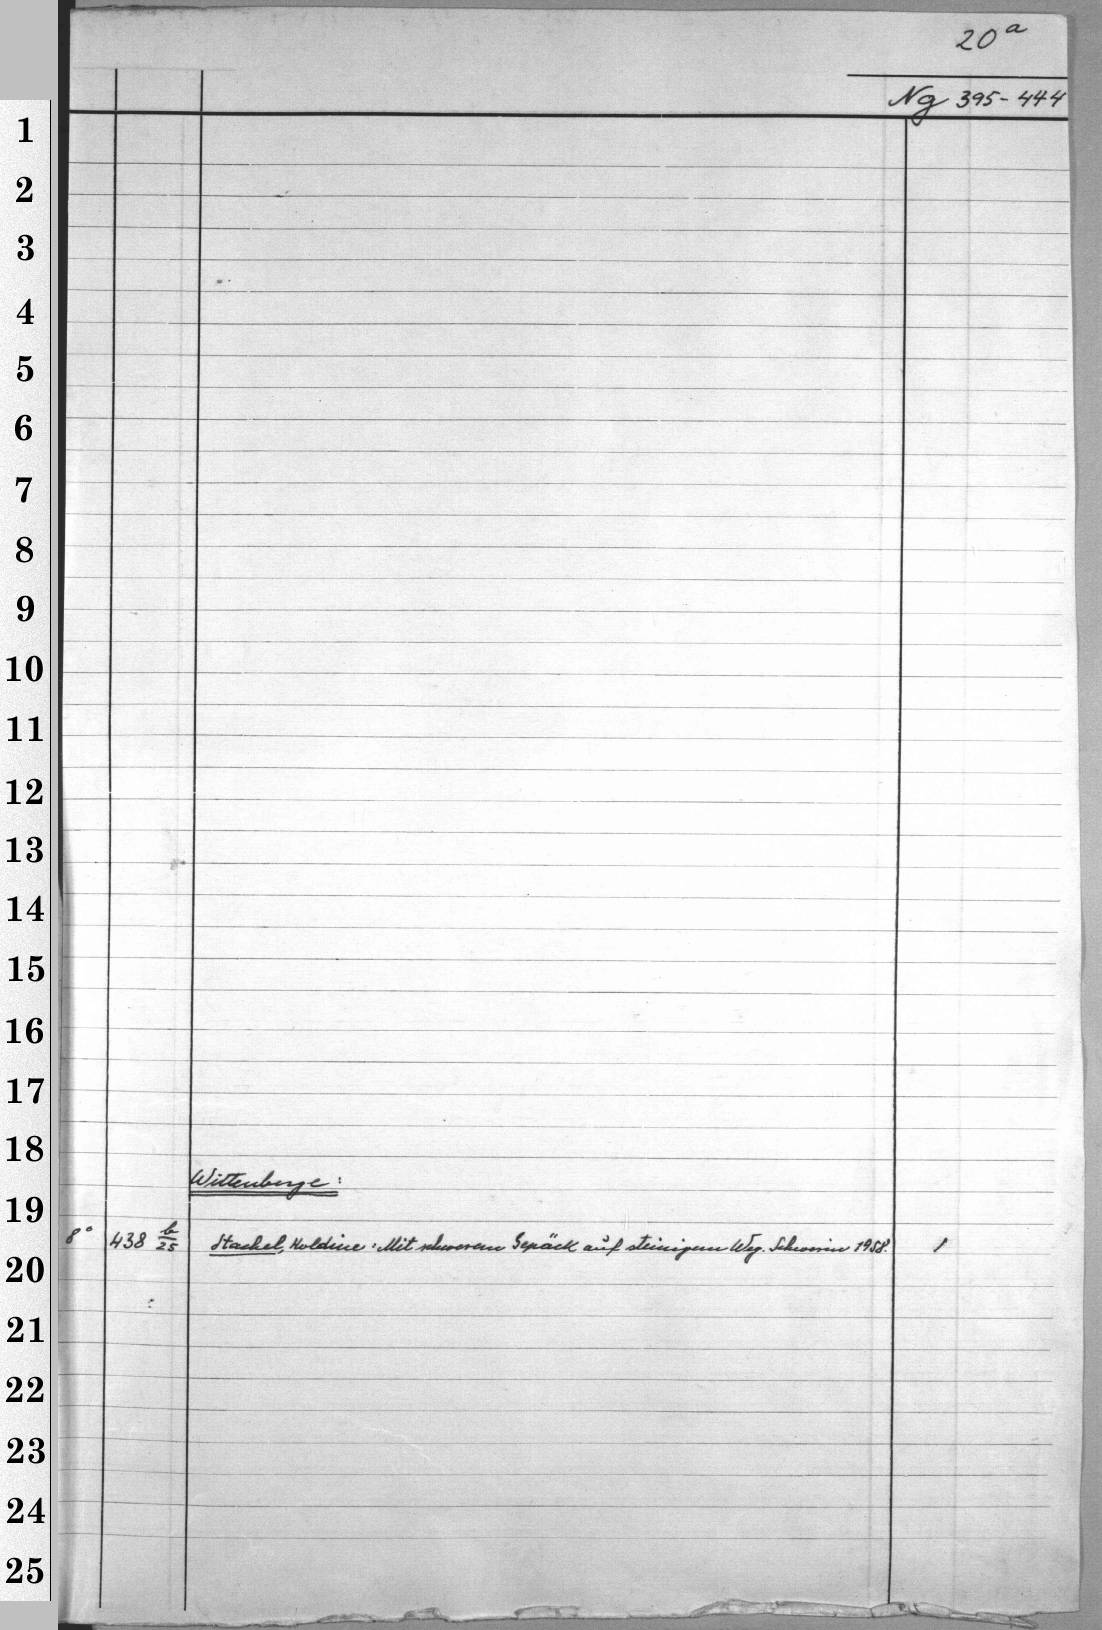 20 a
Ng 395-444
1
2
3
4
5
6
7
8
9
10
11
12
13
14
15
16
17
18
Wittenberge:
19
8° 438 b/25 Stachel, Holdine: Mit schwerem Gepäck auf steinigem Weg. Schwerin 1958. 1
20
21
22
23
24
25